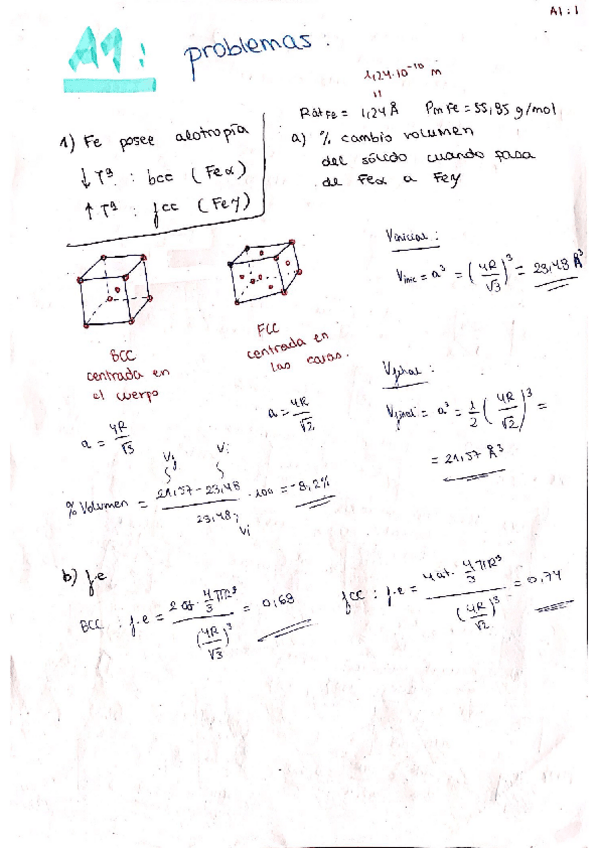 A1 : 1
A1 : problemas :
1,24·10⁻¹⁰ m
11
Rát Fe = 1,24 Å PmFe = 55,85 g/mol
1) Fe posee alotropía
↓ Tª : bcc (Feα)
↑ Tª : fcc (Feγ)
a) % cambio volumen
del sólido cuando pasa
de Feα a Feγ
Vinicial :
Vinic = a³ = (4R/√3)³ = 23,48 Å³
BCC
centrada en
el cuerpo
FCC
centrada en
las caras.
a = 4R/√3
a = 4R/√2
Vfinal :
Vfinal = a³ = 1/2 (4R/√2)³ =
= 21,57 Å³
Vf Vi
% Volumen = (21,57 - 23,48)/23,48 · 100 = -8,2%
Vi
b) f.e
BCC : f.e = (2 at. 4/3 πR³)/(4R/√3)³ = 0,68
fcc : f.e = (4 at. 4/3 πR³)/(4R/√2)³ = 0,74